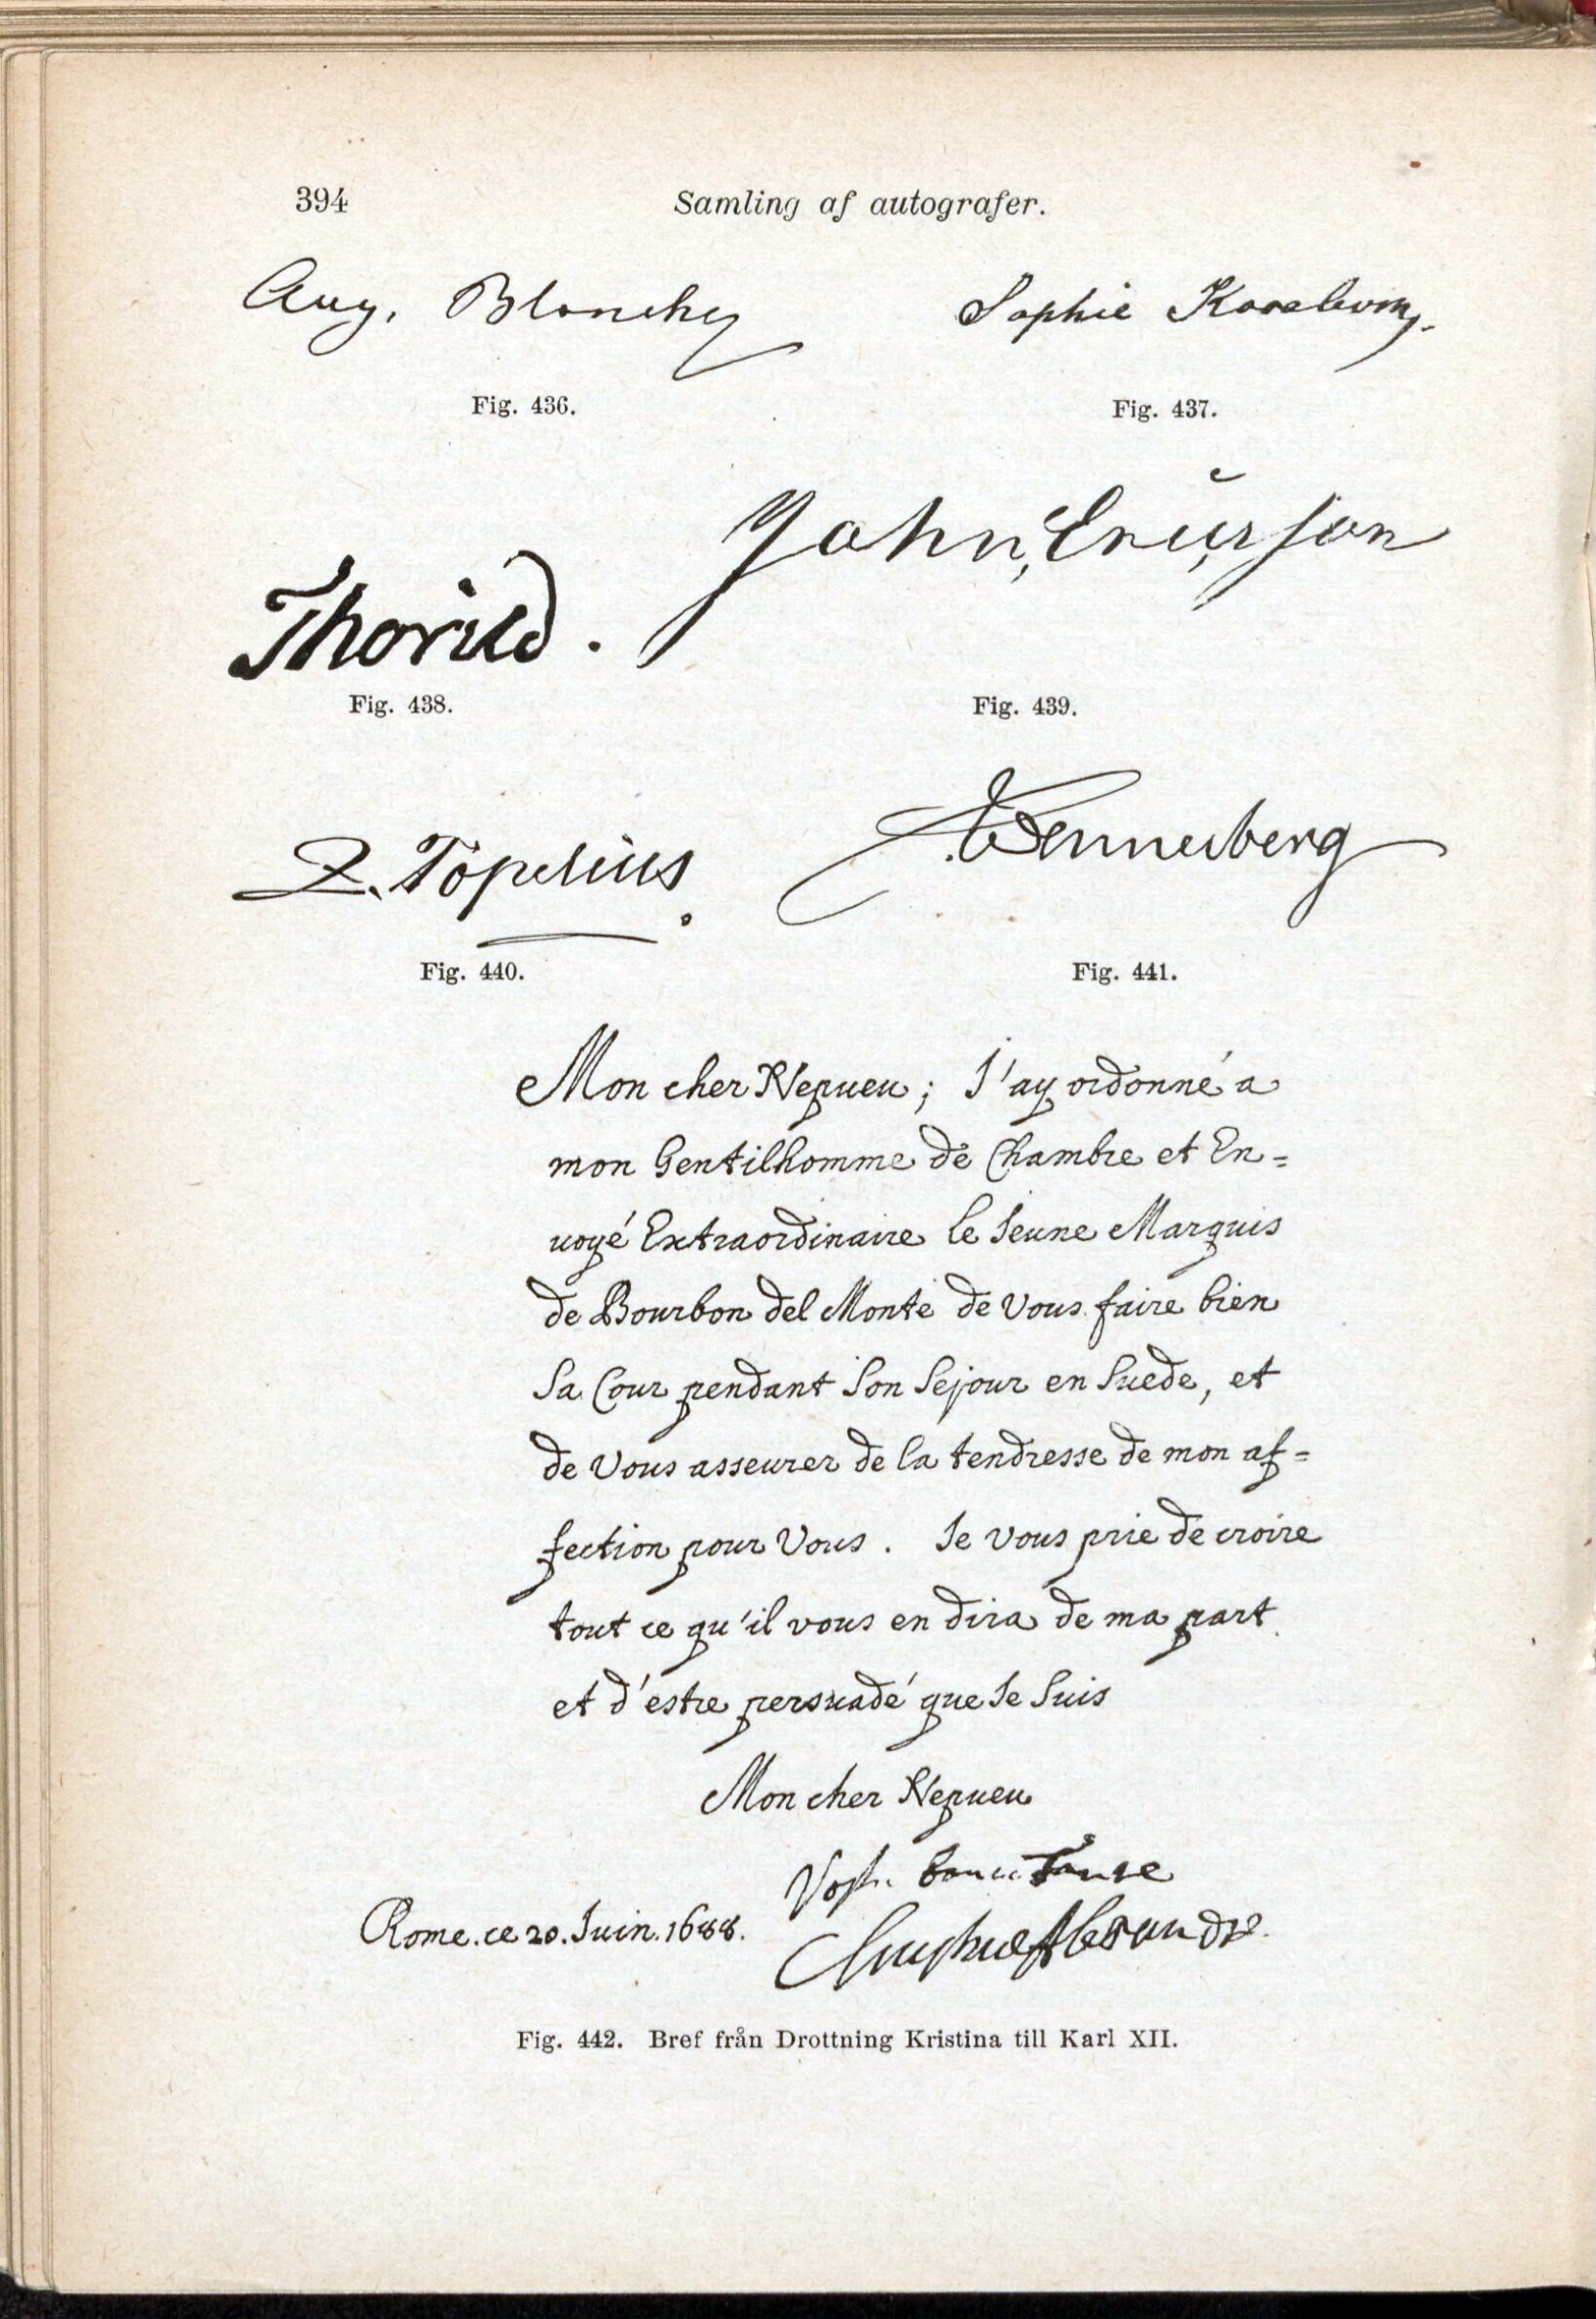 394 Samling af autografer.
Aug. Blanche
Sophie Kovalevsky.
Fig. 436.
Fig. 437.
John Ericsson
Thorild.
Fig. 438.
Fig. 439.
Z. Topelius.
Wennerberg
Fig. 440.
Fig. 441.
Mon cher Nepueu; J'ay ordonné a
mon Gentilhomme de Chambre et En=
uoyé Extraordinaire le Jeune Marquis
de Bourbon del Monte de Vous faire bien
Sa Cour pendant Son Sejour en Suede, et
de Vous asseurer de la tendresse de mon af=
fection pour Vous. Je vous prie de croire
tout ce qu'il vous en dira de ma part
et d'estre persuadé que Je Suis
Mon cher Nepueu
Vostre bonne Tante
Rome. ce 20. Juin. 1688.
Christine Alexandra.
Fig. 442. Bref från Drottning Kristina till Karl XII.